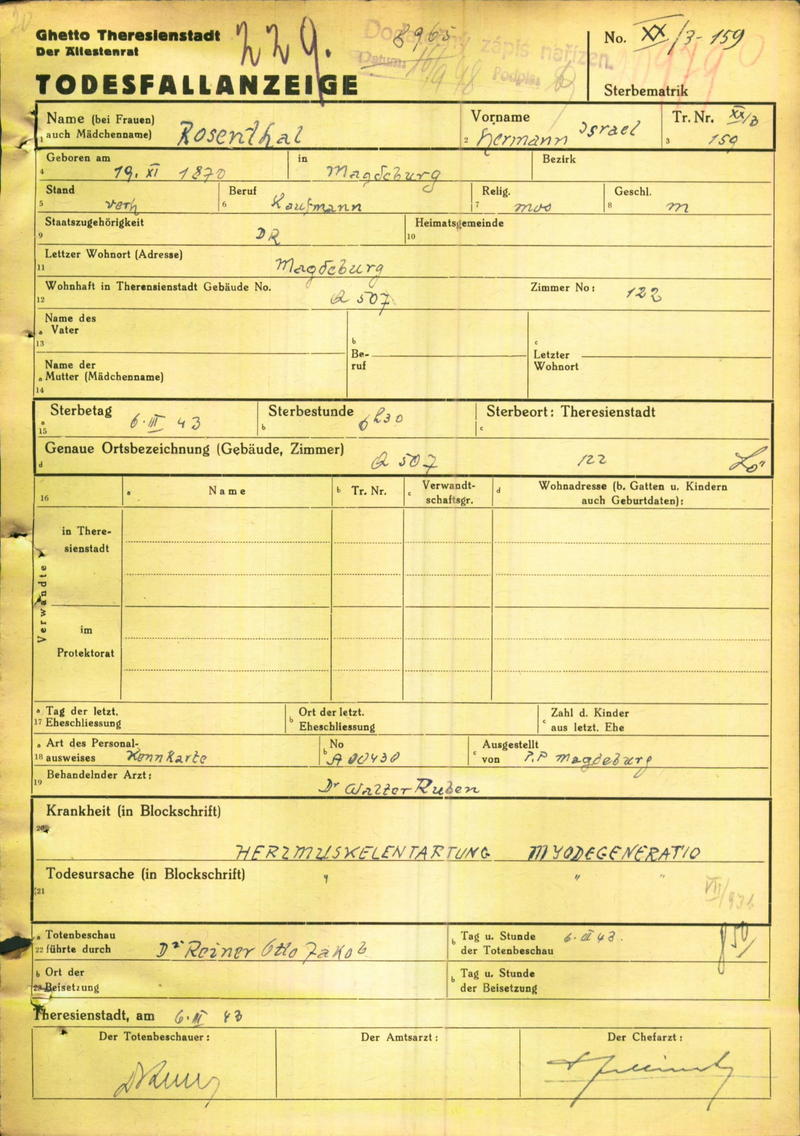 Ghetto Theresienstadt
Der Ältestenrat
229.
8965
No. XX/3-159
TODESFALLANZEIGE
Sterbematrik
Name (bei Frauen) auch Mädchenname) Rosenthal
Vorname Hermann Israel
Tr. Nr. XX/3 159
1 2 3
Geboren am 19. XI 1870 in Magdeburg Bezirk
4
Stand verh Beruf Kaufmann Relig. mos Geschl. m
5 6 7 8
Staatszugehörigkeit DR Heimatsgemeinde
9 10
Lettzer Wohnort (Adresse) Magdeburg
11
Wohnhaft in Therensienstadt Gebäude No. Q 507 Zimmer No: 122
12
Name des
a Vater
13
b Beruf
c Letzter Wohnort
Name der
a Mutter (Mädchenname)
14
Sterbetag 6. III 43 Sterbestunde 6h30 Sterbeort: Theresienstadt
a 15 b c
Genaue Ortsbezeichnung (Gebäude, Zimmer) Q 507 122
d
16 a Name b Tr. Nr. c Verwandt-schaftsgr. d Wohnadresse (b. Gatten u. Kindern auch Geburtdaten):
Verwandte
in There-
sienstadt
im
Protektorat
a Tag der letzt. 17 Eheschliessung
b Ort der letzt. Eheschliessung
c Zahl d. Kinder aus letzt. Ehe
a Art des Personal- 18 ausweises Kennkarte
b No A 00430
c Ausgestellt von P.P Magdeburg
19 Behandelnder Arzt: Dr Walter Ruben
Krankheit (in Blockschrift)
20
HERZMUSKELENTARTUNG MYODEGENERATIO
Todesursache (in Blockschrift) " " "
21
a Totenbeschau 22 führte durch Dr Reiner Otto Jakob
b Tag u. Stunde der Totenbeschau 6. III 43.
b Ort der Beisetzung
b Tag u. Stunde der Beisetzung
Theresienstadt, am 6. III 43
Der Totenbeschauer: Der Amtsarzt: Der Chefarzt: